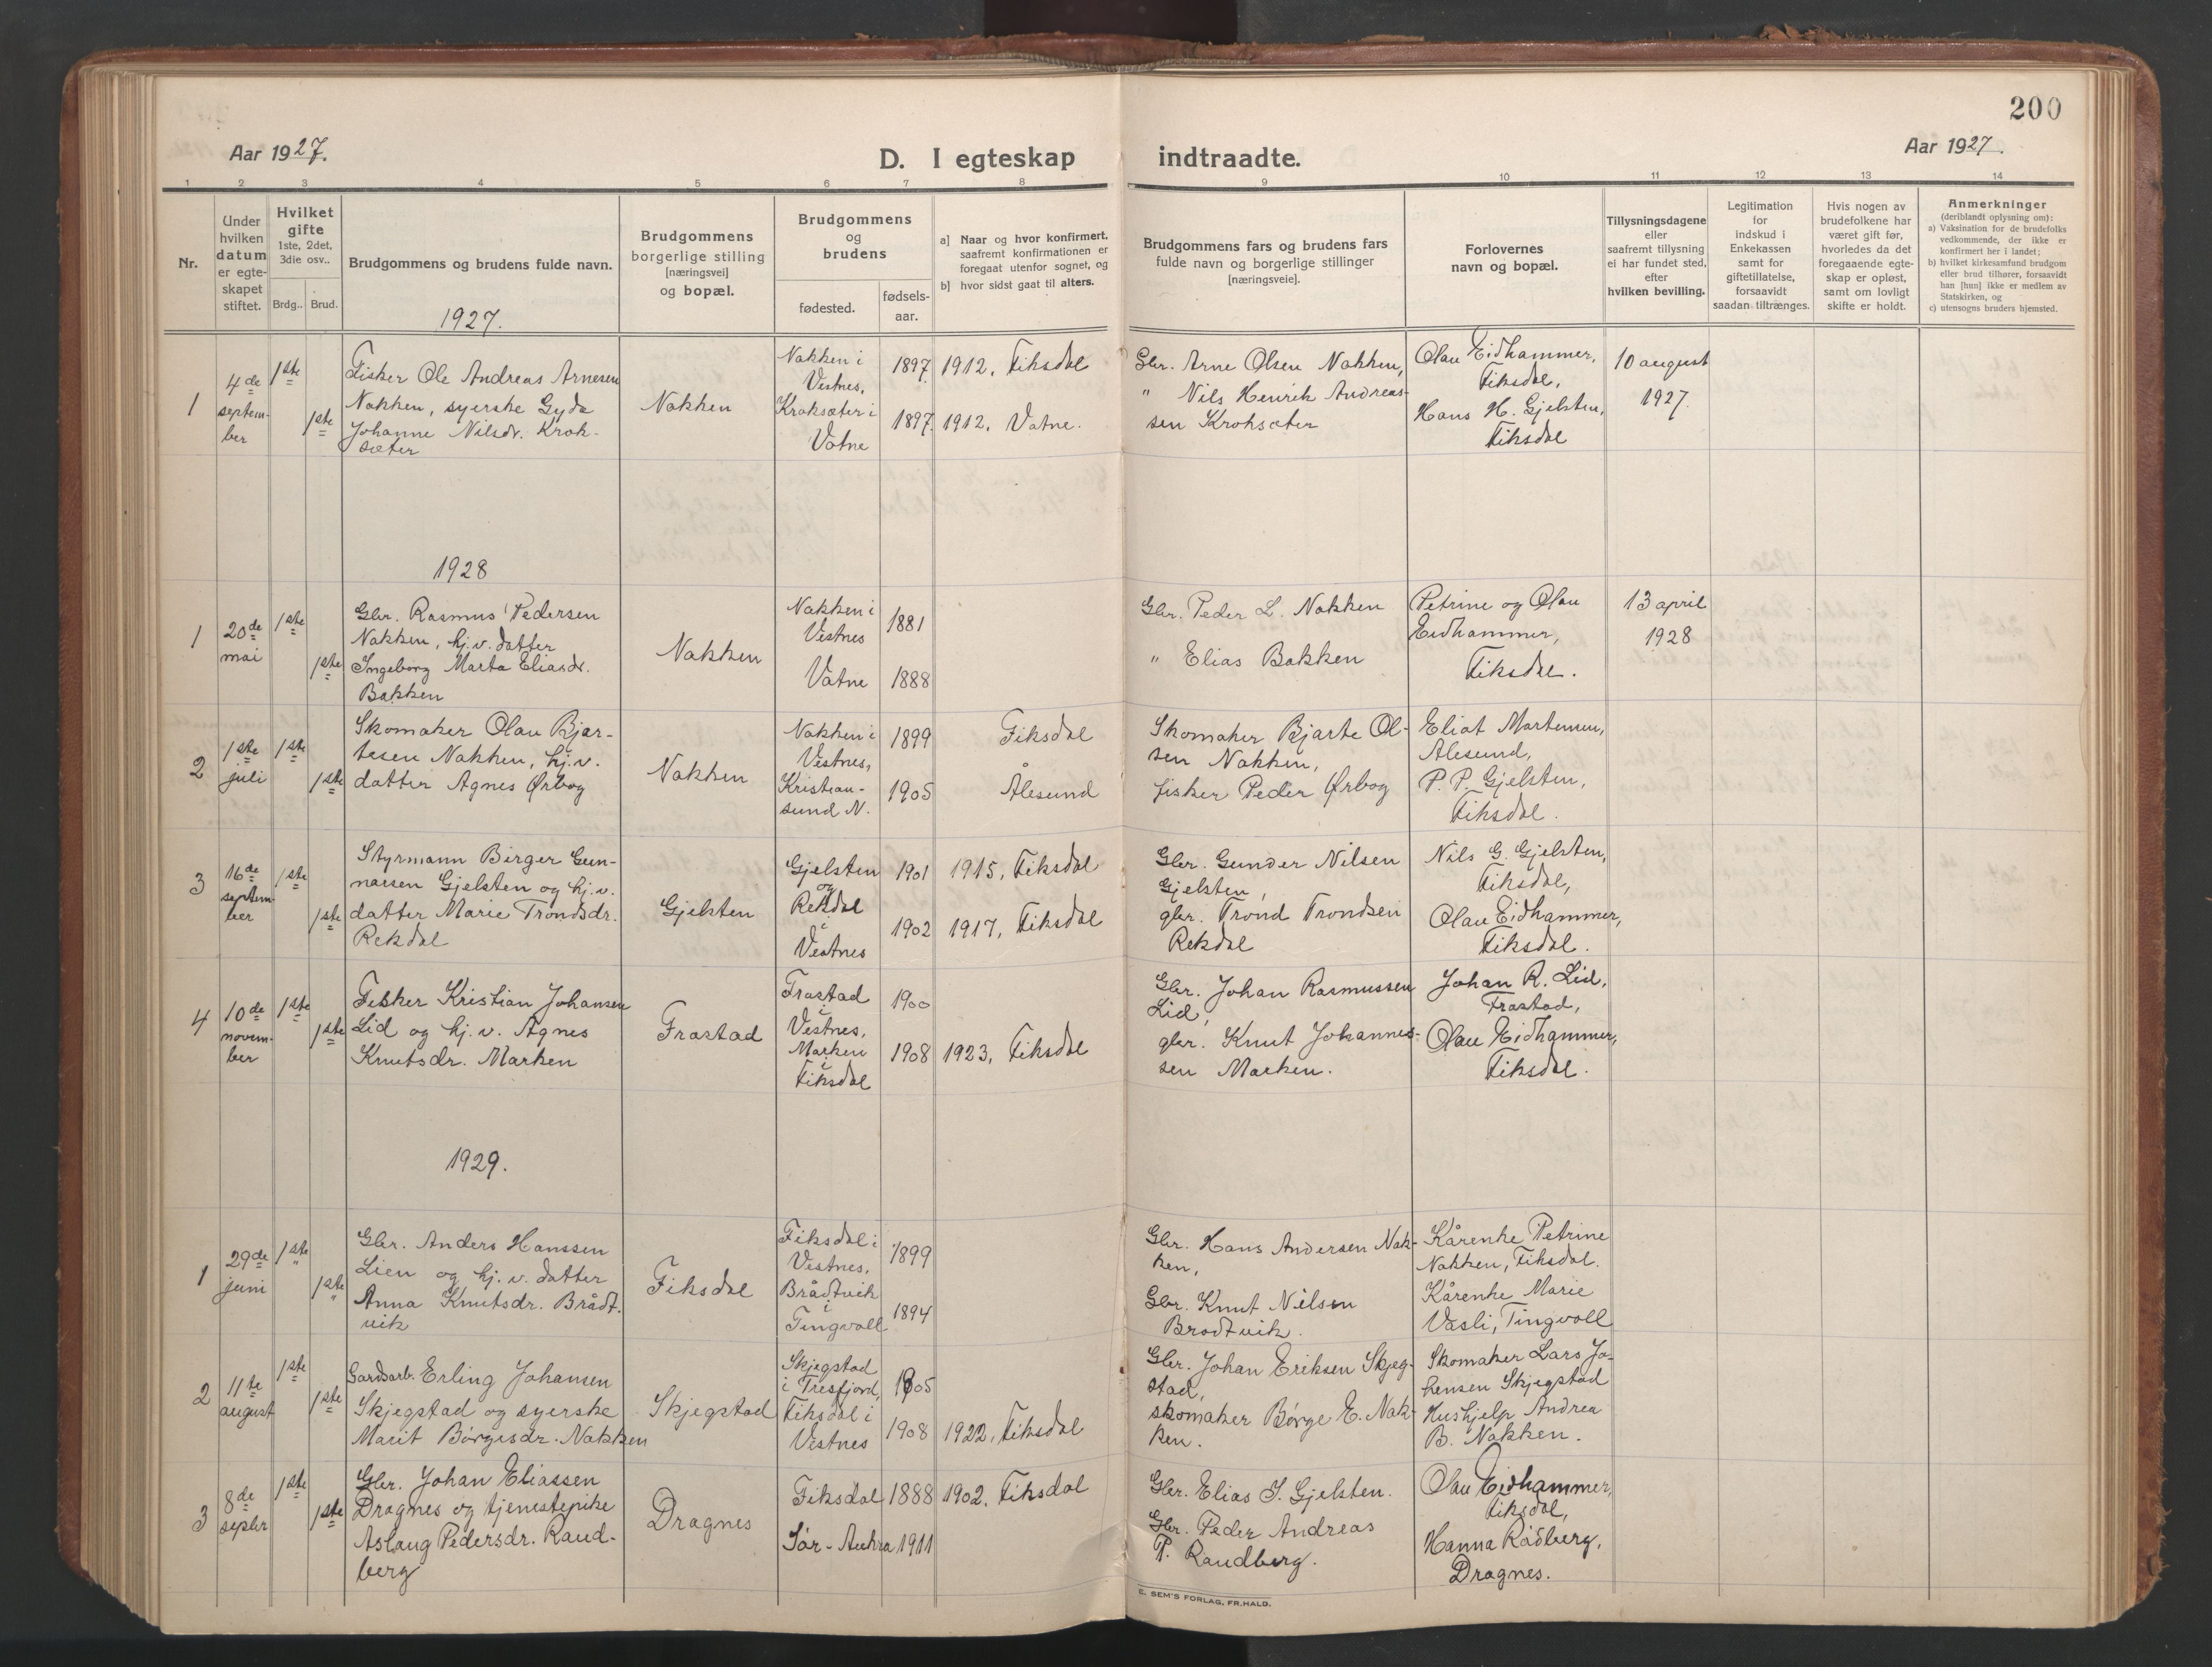 200
Aar 1927.
D. I egteskap
indtraadte.
Aar 1927.
1 2 3 4 5 6 7 8 9 10 11 12 13 14
Nr.
Under
hvilken
datum
er egte-
skapet
stiftet.
Hvilket
gifte
1ste, 2det,
3die osv..
Brdg..
Brud.
Brudgommens og brudens fulde navn.
Brudgommens
borgerlige stilling
[næringsvei]
og bopæl.
Brudgommens
og
brudens
fødested.
fødsels-
aar.
a] Naar og hvor konfirmert,
saafremt konfirmationen er
foregaat utenfor sognet, og
b] hvor sidst gaat til alters.
Brudgommens fars og brudens fars
fulde navn og borgerlige stillinger
[næringsveie].
Forlovernes
navn og bopæl.
Tillysningsdagene
eller
saafremt tillysning
ei har fundet sted,
efter
hvilken bevilling.
Legitimation
for
indskud i
Enkekassen
samt for
giftetillatelse,
forsaavidt
saadan tiltrænges.
Hvis nogen av
brudefolkene har
været gift før,
hvorledes da det
foregaaende egte-
skap er opløst,
samt om lovligt
skifte er holdt.
Anmerkninger
(deriblandt oplysning om):
a) Vaksination for de brudefolks
vedkommende, der ikke er
konfirmert her i landet;
b) hvilket kirkesamfund brudgom
eller brud tilhører, forsaavidt
han [hun] ikke er medlem av
Statskirken, og
c) utensogns bruders hjemsted.
1927.
1
4de
septem-
ber
1ste
1ste
Fisker Ole Andreas Arnesen
Nakken, syerske Gyda
Johanne Nilsdr. Krok-
sæter
Nakken
Nakken i
Vestnes,
Kroksæter i
Vatne
1897.
1897.
1912, Fiksdal
1912, Vatne.
Gbr. Arne Olsen Nakken,
" Nils Henrik Andreas-
sen Kroksæter
Olau Eidhammer,
Fiksdal,
Hans H. Gjelsten,
Fiksdal
10 august
1927.
1928
1
20de
mai
1ste
1ste
Gbr. Rasmus Pedersen
Nakken, hj.v. datter
Ingeborg Marta Eliasdr.
Bakken
Nakken
Nakken i
Vestnes
Vatne
1881
1888
Gbr. Peder L. Nakken
" Elias Bakken
Petrine og Olau
Eidhammer,
Fiksdal.
13 april
1928
2
1ste
juli
1ste
1ste
Skomaker Olau Bjar-
tesen Nakken, hj.v.
datter Agnes Ørbog
Nakken
Nakken i
Vestnes,
Kristian-
sund N.
1899
1905
Fiksdal
Ålesund
Skomaker Bjarte Ol-
sen Nakken,
fisker Peder Ørbog
Eliot Martensen,
Ålesund,
P. P. Gjelsten,
Fiksdal.
3
16de
septem-
ber
1ste
1ste
Styrmann Birger Gun-
narsen Gjelsten og hj.v.
datter Marie Trondsdr.
Rekdal
Gjelsten
Gjelsten
og
Rekdal
i
Vestnes
1901
1902
1915, Fiksdal
1917, Fiksdal
Gbr. Gunder Nilsen
Gjelsten,
gbr. Trond Trondsen
Rekdal
Nils G. Gjelsten,
Fiksdal,
Olau Eidhammer,
Fiksdal.
4
10de
novem-
ber
1ste
1ste
Fisker Kristian Johansen
Lid og hj.v. Agnes
Knutsdr. Marken
Frastad
Frastad
i
Vestnes,
Marken
i
Fiksdal
1900
1908
1923, Fiksdal
Gbr. Johan Rasmussen
Lid,
gbr. Knut Johannes-
sen Marken.
Johan R. Lid,
Frastad,
Olau Eidhammer,
Fiksdal.
1929.
1
29de
juni
1ste
1ste
Gbr. Anders Hanssen
Lien og hj.v. datter
Anna Knutsdr. Brådt-
vik
Fiksdal
Fiksdal i
Vestnes,
Brådtvik
i
Tingvoll
1899
1894
Gbr. Hans Andersen Nak-
ken,
Gbr. Knut Nilsen
Brodtvik.
Kårenke Petrine
Nakken, Fiksdal.
Kårenke Marie
Vasli, Tingvoll
2
11te
august
1ste
1ste
Gardsarb. Erling Johansen
Skjegstad og syerske
Marit Børgesdr. Nakken
Skjegstad
Skjegstad
i Tresfjord,
Fiksdal i
Vestnes
1905
1908
1922, Fiksdal
Gbr. Johan Eriksen Skjeg-
stad,
skomaker Børge E. Nak-
ken.
Skomaker Lars Jo-
hensen Skjegstad
Hushjelp Andrea
B. Nakken.
3
8de
septbr
1ste
1ste
Gbr. Johan Eliassen
Dragnes og tjenestepike
Aslaug Pedersdr. Raud-
berg
Dragnes
Fiksdal
Sør-Aukra
1888
1911
1902, Fiksdal
Gbr. Elias I. Gjelsten.
Gbr. Peder Andreas
P. Raudberg.
Olau Eidhammer,
Fiksdal,
Hanna Rådberg,
Dragnes.
E. SEM'S FORLAG, FR.HALD.